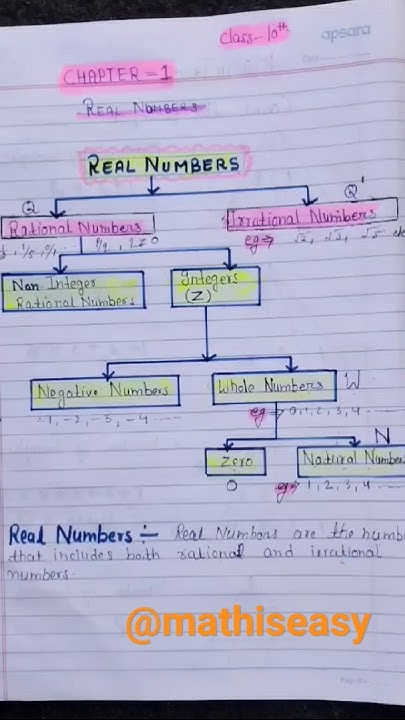 Class-10th
apsara
CHAPTER-1
REAL NUMBERS
REAL NUMBERS
Q
Q'
Rational Numbers
Irrational Numbers
p/q, q≠0
eg⇒ √2, √3, √5 etc
Non Integer
Rational Numbers
Integers
(Z)
Negative Numbers
Whole Numbers W
-1, -2, -3, -4 ......
eg⇒ 0,1,2,3,4 ......
N
Zero
Natural Number
0
eg⇒ 1, 2, 3, 4 ......
Real Numbers :- Real Numbers are the numbe
that includes both rational and irrational
numbers.
@mathiseasy